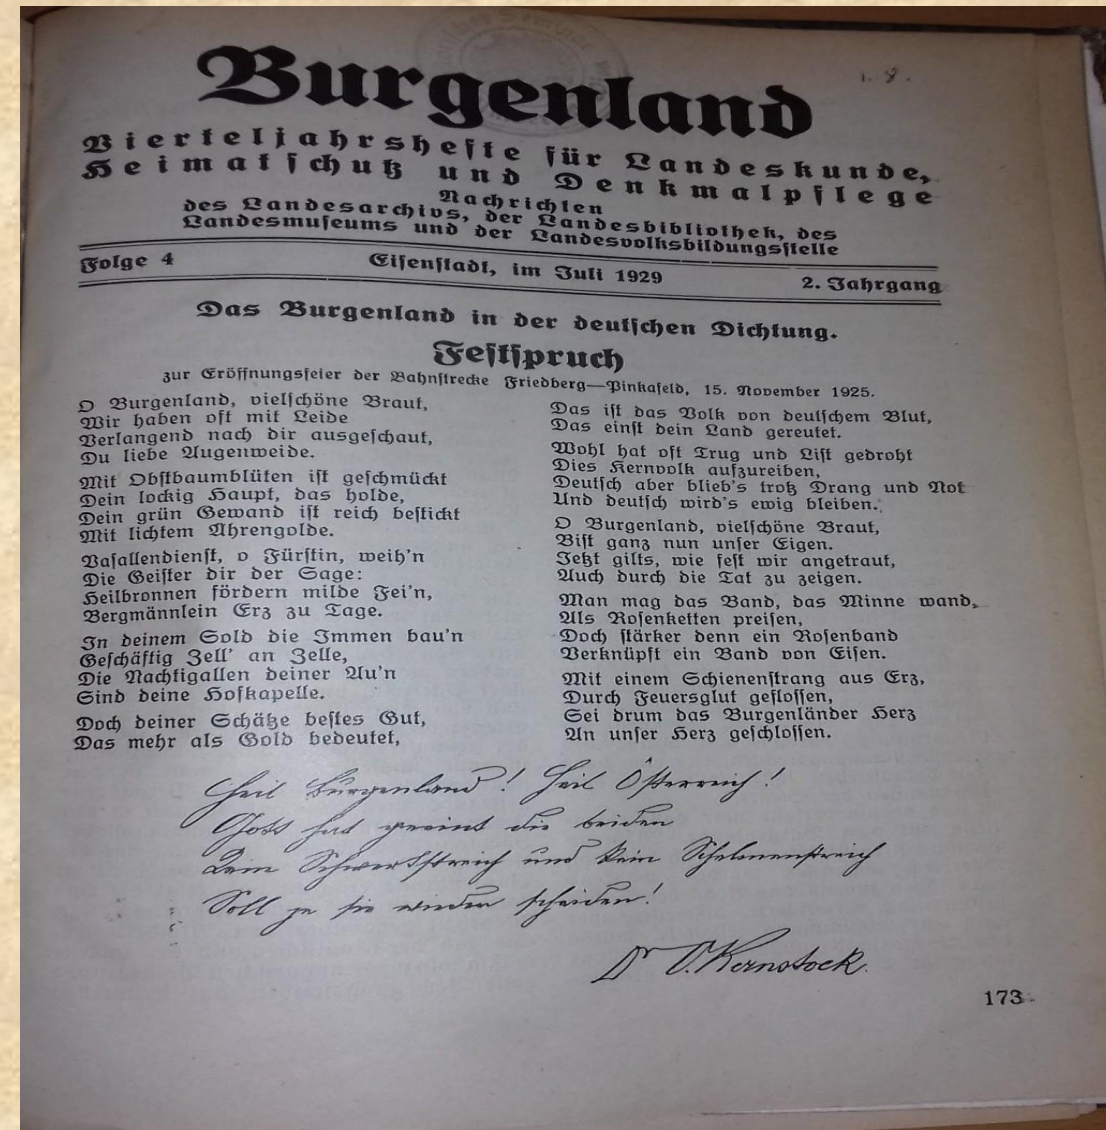 Burgenland
1. 8.
Vierteljahrshefte für Landeskunde,
Heimatschutz und Denkmalpflege
Nachrichten
des Landesarchivs, der Landesbibliothek, des
Landesmuseums und der Landesvolksbildungsstelle
Folge 4 Eisenstadt, im Juli 1929 2. Jahrgang
Das Burgenland in der deutschen Dichtung.
Festspruch
zur Eröffnungsfeier der Bahnstrecke Friedberg—Pinkafeld, 15. November 1925.
O Burgenland, vielschöne Braut,
Wir haben oft mit Leide
Verlangend nach dir ausgeschaut,
Du liebe Augenweide.
Mit Obstbaumblüten ist geschmückt
Dein lockig Haupt, das holde,
Dein grün Gewand ist reich bestickt
Mit lichtem Ährengolde.
Vasallendienst, o Fürstin, weih'n
Die Geister dir der Sage:
Heilbronnen fördern milde Fei'n,
Bergmännlein Erz zu Tage.
In deinem Sold die Immen bau'n
Geschäftig Zell' an Zelle,
Die Nachtigallen deiner Au'n
Sind deine Hofkapelle.
Doch deiner Schätze bestes Gut,
Das mehr als Gold bedeutet,
Das ist das Volk von deutschem Blut,
Das einst dein Land gereutet.
Wohl hat oft Trug und List gedroht
Dies Kernvolk aufzureiben,
Deutsch aber blieb's trotz Drang und Not
Und deutsch wird's ewig bleiben.
O Burgenland, vielschöne Braut,
Bist ganz nun unser Eigen.
Jetzt gilts, wie fest wir angetraut,
Auch durch die Tat zu zeigen.
Man mag das Band, das Minne wand,
Als Rosenketten preisen,
Doch stärker denn ein Rosenband
Verknüpft ein Band von Eisen.
Mit einem Schienenstrang aus Erz,
Durch Feuersglut geflossen,
Sei drum das Burgenländer Herz
An unser Herz geschlossen.
Heil Burgenland! Heil Österreich!
Gott hat geeint die beiden
Kein Schwertstreich und kein Schelmenstreich
Soll je sie wieder scheiden!
Dr O. Kernstock.
173